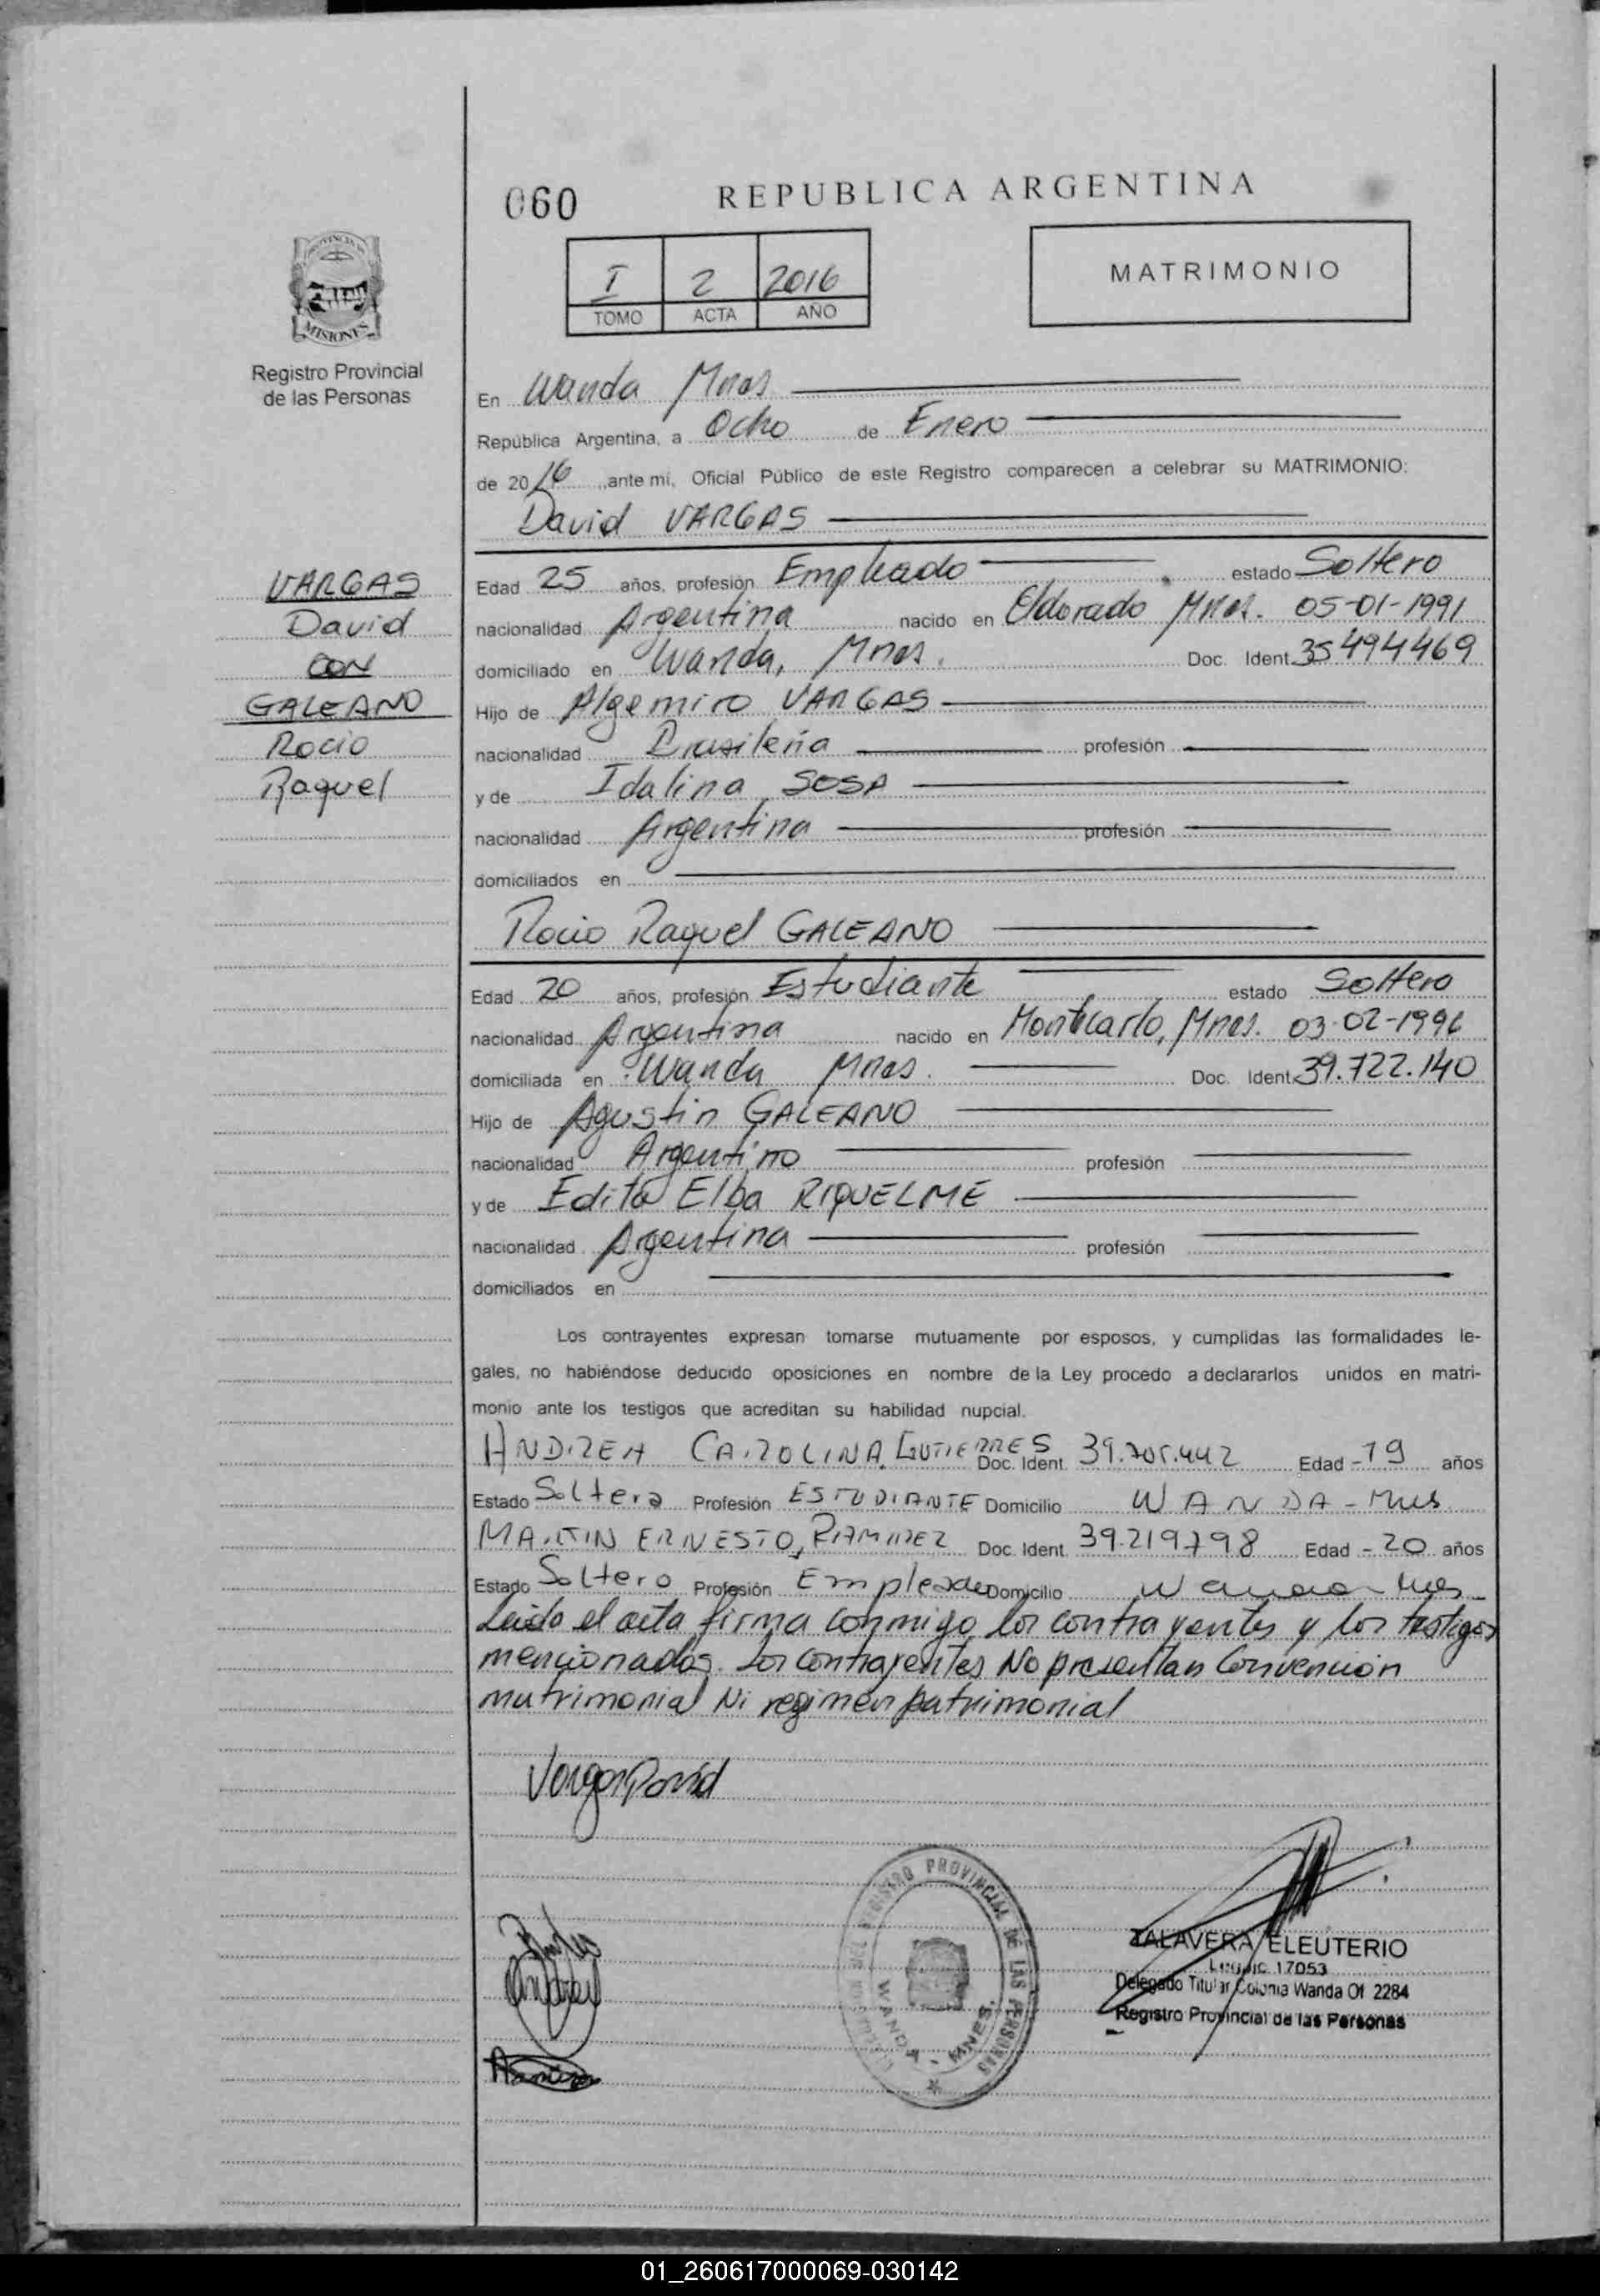 060
REPUBLICA ARGENTINA
I 2 2016
TOMO ACTA AÑO
MATRIMONIO
PROVINCIA DE
MISIONES
Registro Provincial
de las Personas
En Wanda Mnes
República Argentina, a Ocho de Enero
de 2016, ante mi, Oficial Público de este Registro comparecen a celebrar su MATRIMONIO:
David VARGAS
VARGAS
David
CON
GALEANO
Rocio
Raquel
Edad 25 años, profesión Empleado estado Soltero
nacionalidad Argentina nacido en Eldorado Mnes. 05-01-1991
domiciliado en Wanda, Mnes. Doc. Ident. 35494469
Hijo de Algemiro VARGAS
nacionalidad Brasileña profesión
y de Idalina SOSA
nacionalidad Argentina profesión
domiciliados en
Rocio Raquel GALEANO
Edad 20 años, profesión Estudiante estado Soltero
nacionalidad Argentina nacido en Montecarlo, Mnes. 03-02-1996
domiciliada en Wanda Mnes. Doc. Ident. 39.722.140
Hijo de Agustin GALEANO
nacionalidad Argentino profesión
y de Edita Elba RIQUELME
nacionalidad Argentina profesión
domiciliados en
Los contrayentes expresan tomarse mutuamente por esposos, y cumplidas las formalidades le-
gales, no habiéndose deducido oposiciones en nombre de la Ley procedo a declararlos unidos en matri-
monio ante los testigos que acreditan su habilidad nupcial.
ANDREA CAROLINA GUTIERRES Doc. Ident. 39.705.442 Edad - 19 años
Estado Soltera Profesión ESTUDIANTE Domicilio WANDA - Mnes
MARTIN ERNESTO, RAMIREZ Doc. Ident. 39.219.798 Edad - 20 años
Estado Soltero Profesión Empleado Domicilio Wanda - Mnes
Leido el acta firma conmigo los contrayentes y los testigos
mencionados. Los contrayentes No presentan Convención
matrimonial Ni regimen patrimonial
Vargas David
REGISTRO PROVINCIAL DE LAS PERSONAS
WANDA - MNES.
TALAVERA ELEUTERIO
Legajo 17053
Delegado Titular Colonia Wanda Of. 2284
Registro Provincial de las Personas
01_260617000069-030142